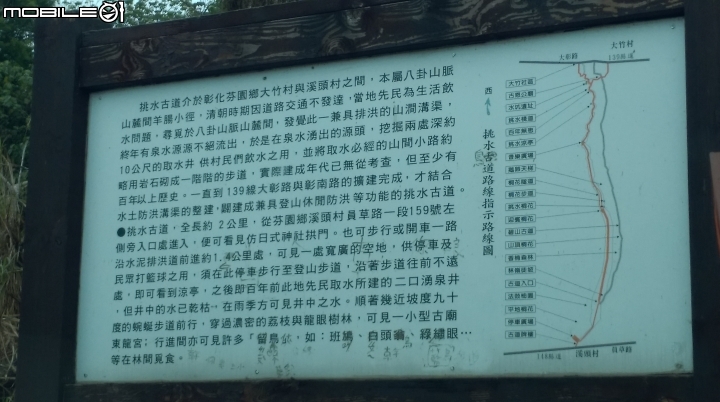 MOBILE01
挑水古道介於彰化芬園鄉大竹村與溪頭村之間，本屬八卦山脈
山麓間羊腸小徑，清朝時期因道路交通不發達，當地先民為生活飲
水問題，尋覓於八卦山脈山麓間，發覺此一兼具排洪的山澗溝渠，
終年有泉水源源不絕流出，於是在泉水湧出的源頭，挖掘兩處深約
10公尺的取水井 供村民們飲水之用，並將取水必經的山間小路約
略用岩石砌成一階階的步道，實際建成年代已無從考查，但至少有
百年以上歷史。一直到139線大彰路與彰南路的擴建完成，才結合
水土防洪溝渠的整建，闢建成兼具登山休閒防洪等功能的挑水古道。
●挑水古道，全長約2公里，從芬園鄉溪頭村員草路一段159號左
側旁入口處進入，便可看見仿日式神社拱門。也可步行或開車一路
沿水泥排洪道前進約1.4公里處，可見一處寬廣的空地，供停車及
民眾打籃球之用，須在此停車步行至登山步道，沿著步道往前不遠
處，即可看到涼亭，之後即百年前此地先民取水所建的二口湧泉井
，但井中的水己乾枯，在雨季方可見井中之水。順著幾近坡度九十
度的蜿蜒步道前行，穿過濃密的荔枝與龍眼樹林，可見一小型古廟
東龍宮；行進間亦可見許多「留鳥」，如：班鳩、白頭翁、綠繡眼…
等在林間覓食。
西
挑水古道路線指示路線圖
大彰路
大竹村
139縣道
大竹社區
古意公廟
水坑遺址
挑水橋頭
百年無患
挑水涼亭
桐花步道
挑水桐花
迎賓桐花
山頂桐花
古道入口
平地桐花
停車廣場
古道牌樓
溪頭村
員草路